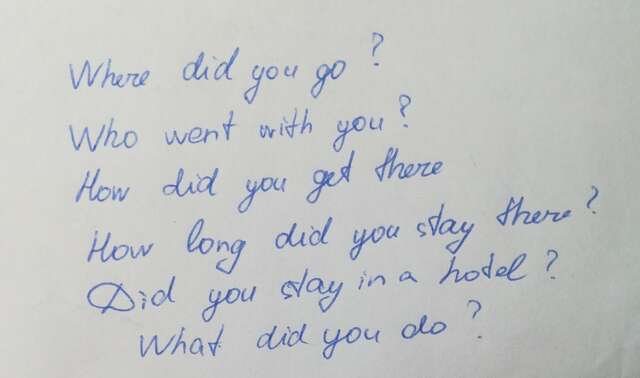 Where did you go ?
Who went with you ?
How did you get there
How long did you stay there ?
Did you stay in a hotel ?
What did you do ?